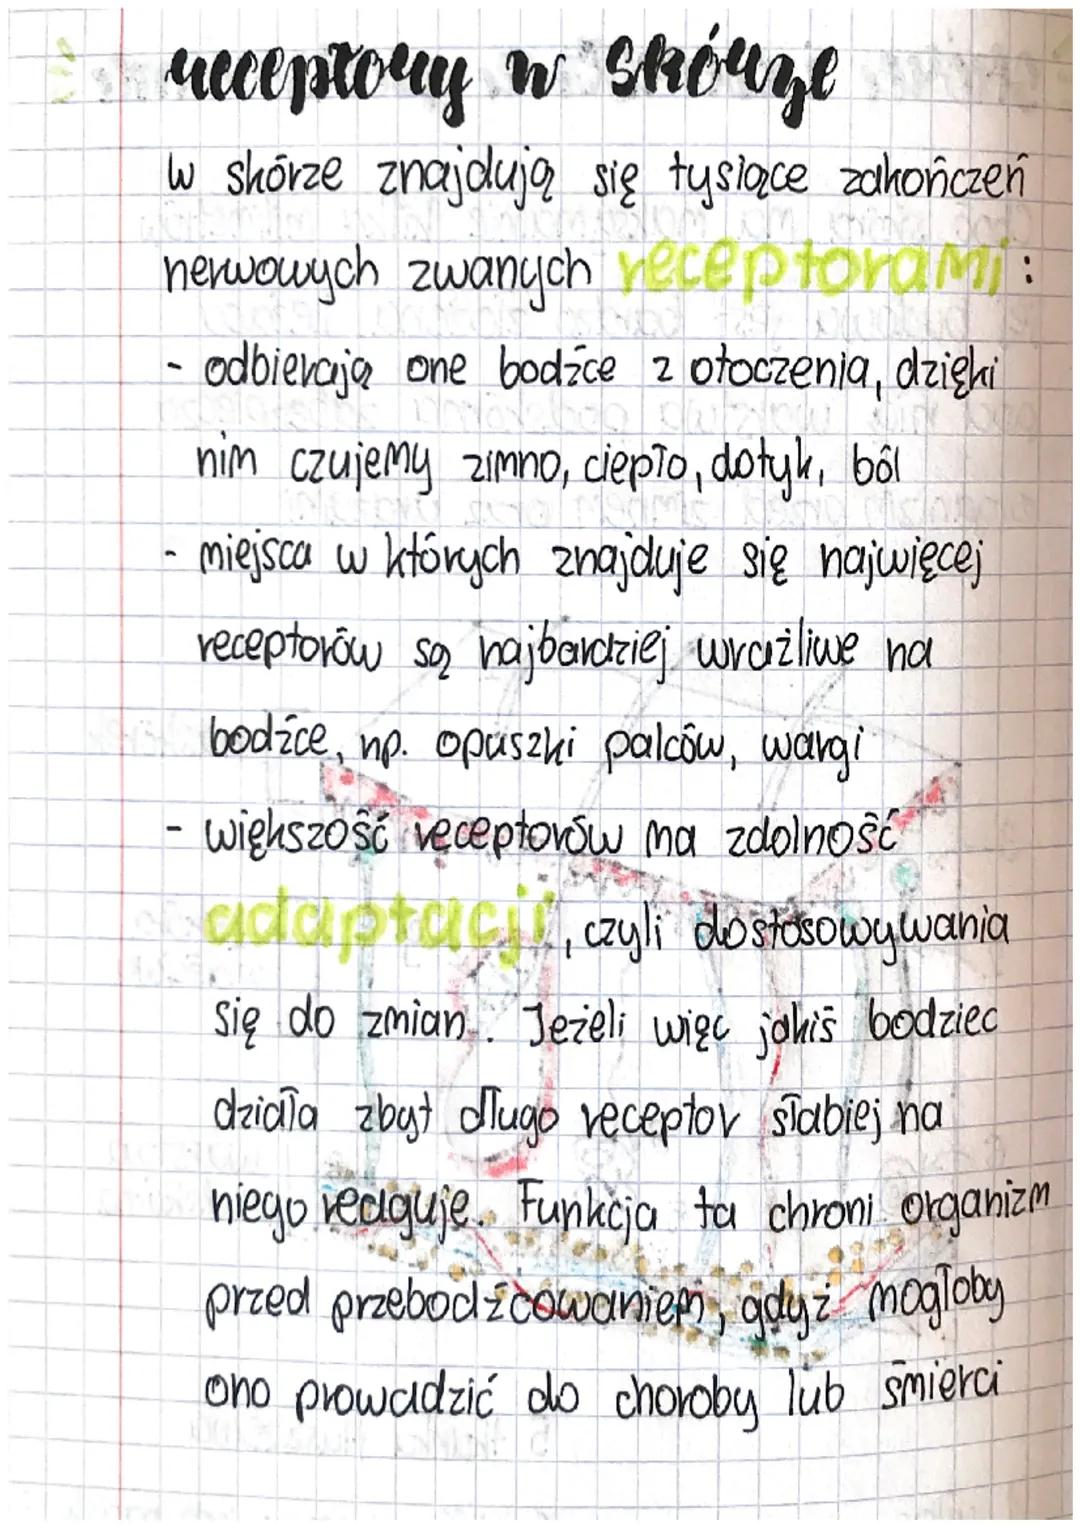 receptory w skórze
w skórze znajdują się tysiące zakończeń
nerwowych zwanych receptorami:
- odbierają one bodźce z otoczenia, dzięki
nim czujemy zimno, ciepło, dotyk, ból
- miejsca w których znajduje się najwięcej
receptorów są najbardziej wrażliwe na
bodźce, np. opuszki palców, wargi
- większość receptorów ma zdolność
adaptacji, czyli dostosowywania
się do zmian. Jeżeli więc jakiś bodziec
działa zbyt długo receptor słabiej na
niego reaguje. Funkcja ta chroni organizm
przed przebodźcowaniem, gdyż mogłoby
ono prowadzić do choroby lub śmierci